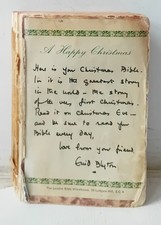 A Happy Christmas
Here is your Christmas Bible.
In it is the greatest story
in the world - the story
of the very first Christmas.
Read it on Christmas Eve -
and be sure to read your
Bible every day.
Love from your friend
Enid Blyton.